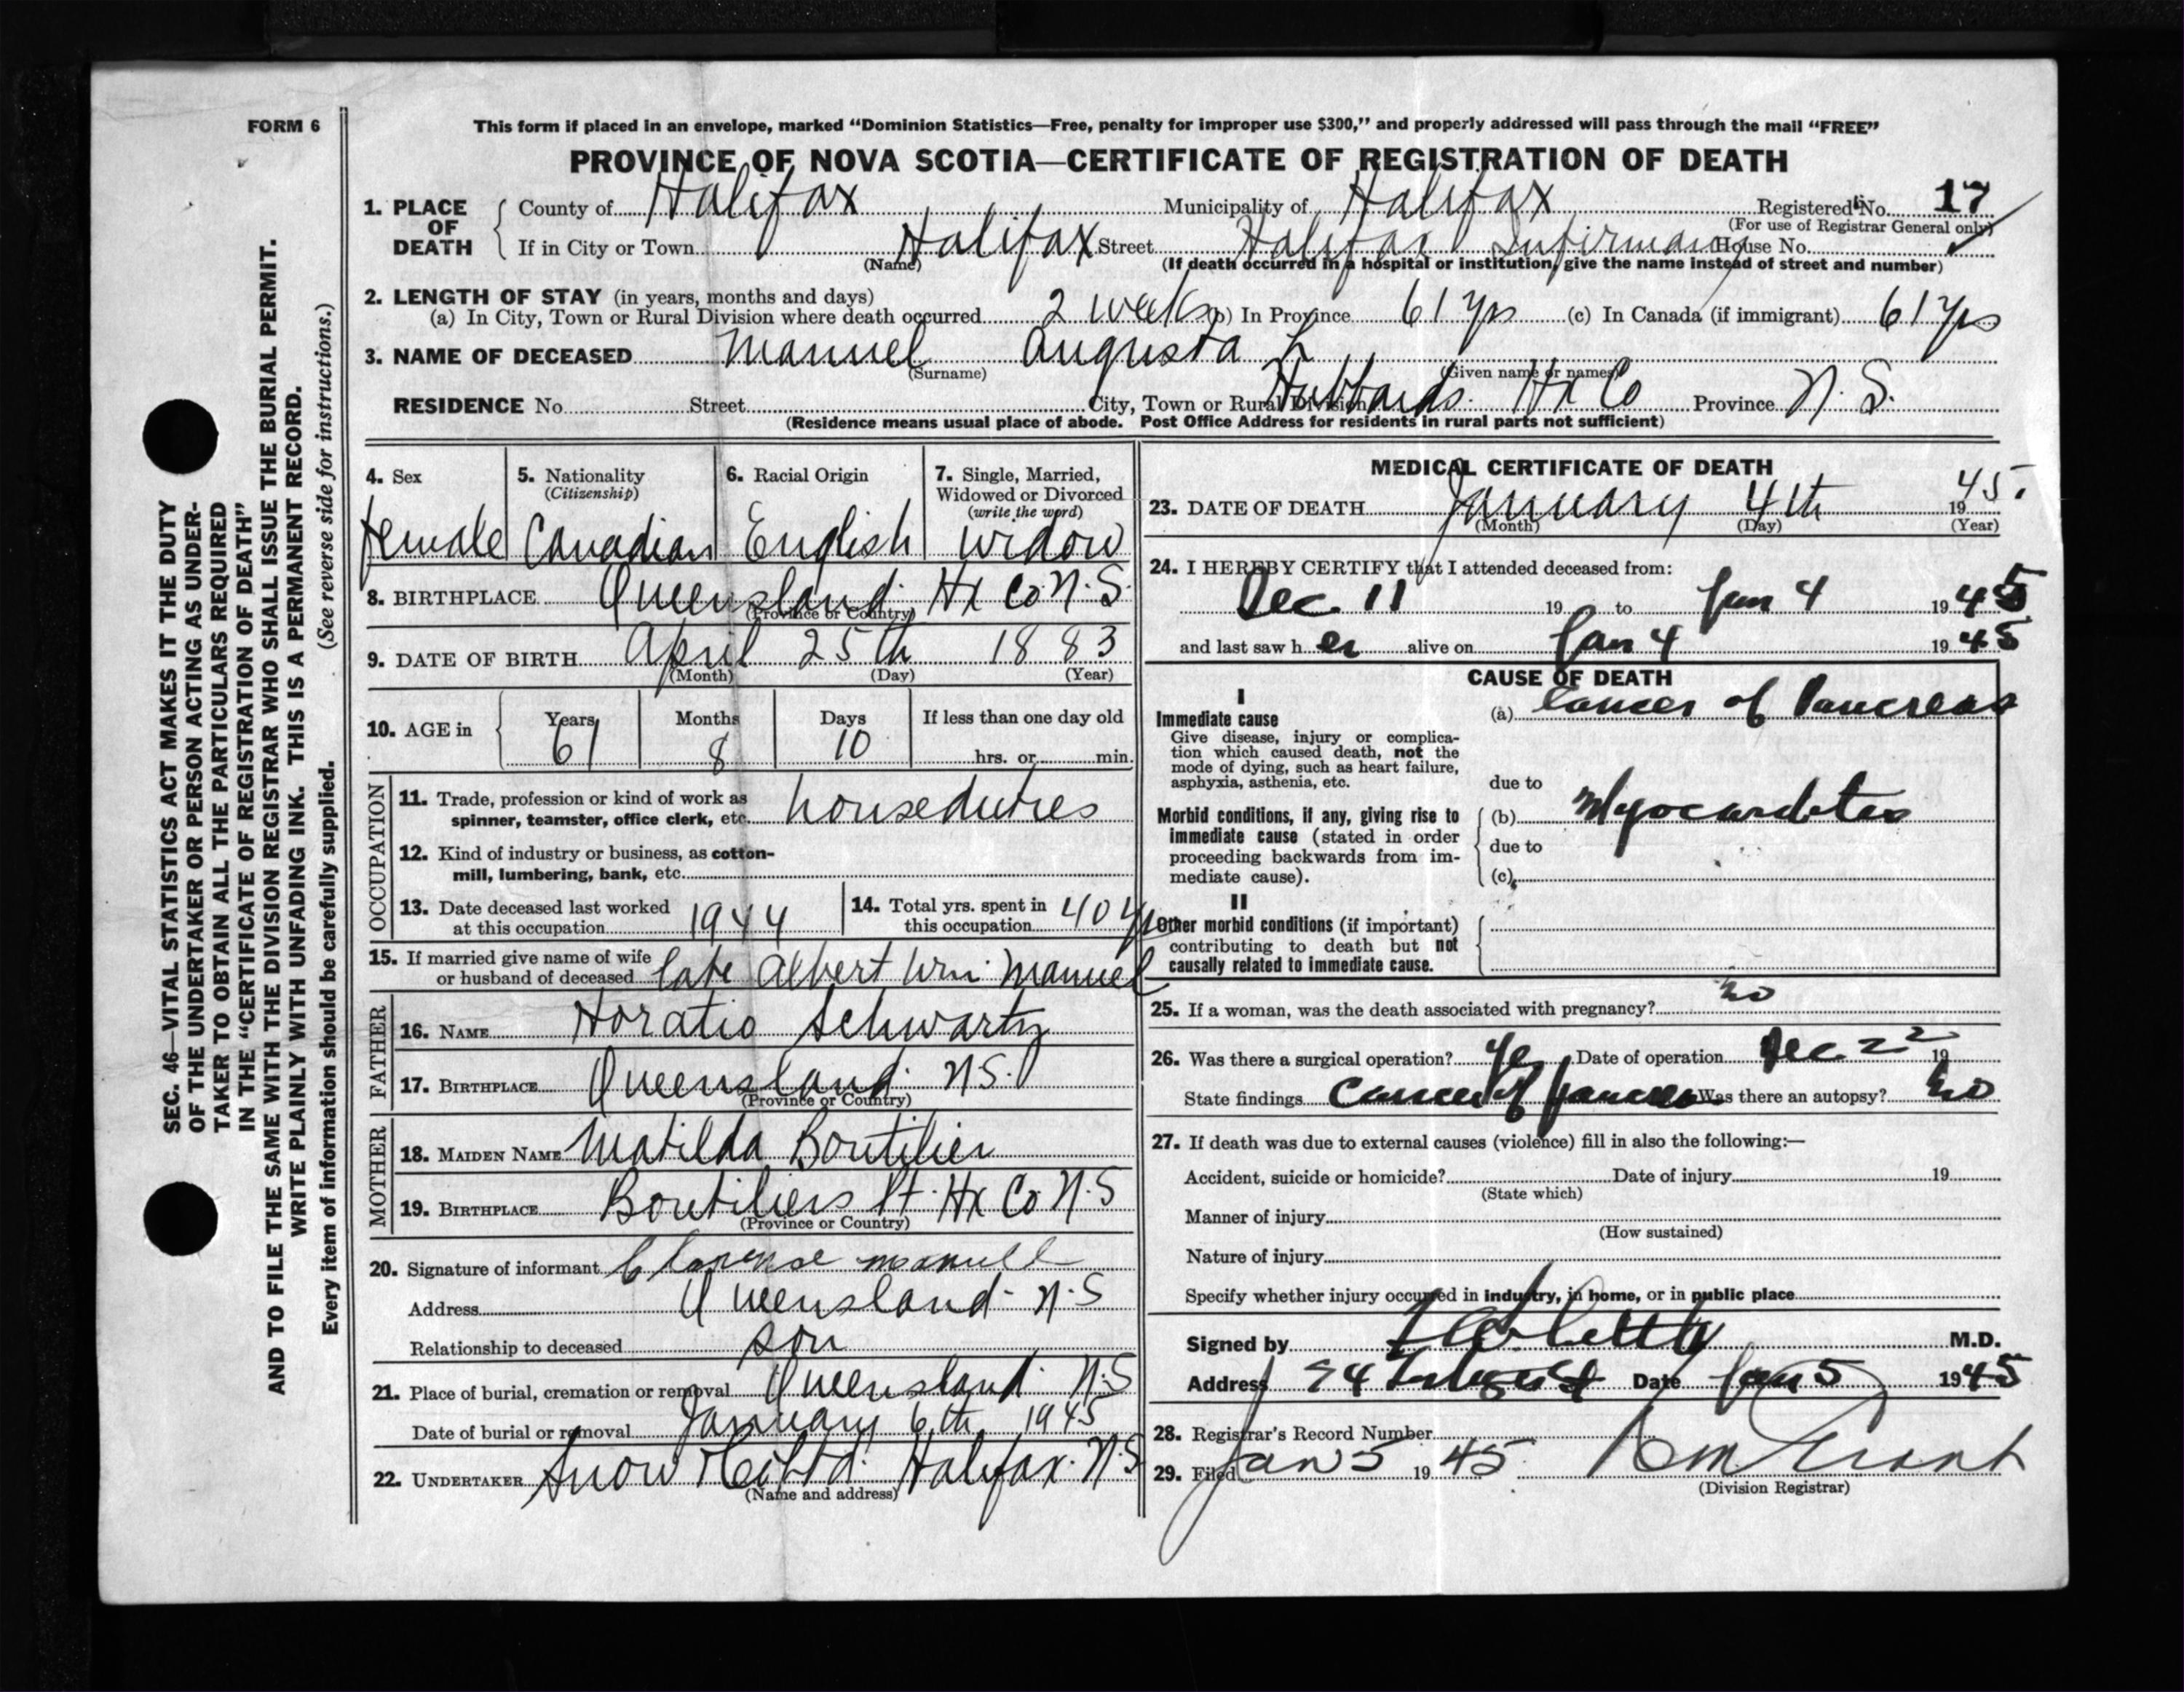 FORM 6
This form if placed in an envelope, marked “Dominion Statistics—Free, penalty for improper use $300,” and properly addressed will pass through the mail “FREE”
PROVINCE OF NOVA SCOTIA—CERTIFICATE OF REGISTRATION OF DEATH
1. PLACE OF DEATH
County of Halifax Municipality of Halifax Registered No. 17
(For use of Registrar General only)
If in City or Town Halifax Street Halifax Infirmary House No.
(Name) (If death occurred in a hospital or institution, give the name instead of street and number)
2. LENGTH OF STAY (in years, months and days)
(a) In City, Town or Rural Division where death occurred 2 weeks (b) In Province 61 yrs (c) In Canada (if immigrant) 61 yrs
3. NAME OF DECEASED Manuel Augusta L
(Surname) (Given name or names)
RESIDENCE No. Street City, Town or Rural Division Hubbards. Hx Co Province N. S.
(Residence means usual place of abode. Post Office Address for residents in rural parts not sufficient)
4. Sex 5. Nationality (Citizenship) 6. Racial Origin 7. Single, Married, Widowed or Divorced (write the word)
female Canadian English widow
8. BIRTHPLACE Queensland. Hx Co. N. S.
(Province or Country)
9. DATE OF BIRTH April 25th 1883
(Month) (Day) (Year)
10. AGE in Years Months Days If less than one day old
61 8 10 hrs. or min.
OCCUPATION
11. Trade, profession or kind of work as
spinner, teamster, office clerk, etc. houseduties
12. Kind of industry or business, as cotton-
mill, lumbering, bank, etc.
13. Date deceased last worked
at this occupation 1944
14. Total yrs. spent in
this occupation 40 yrs
15. If married give name of wife
or husband of deceased late Albert Wm. Manuel
FATHER
16. NAME Horatio Schwartz
17. BIRTHPLACE Queensland. N.S.
(Province or Country)
MOTHER
18. MAIDEN NAME Matilda Boutilier
19. BIRTHPLACE Boutiliers Pt. Hx Co N.S
(Province or Country)
20. Signature of informant Clarense manuell
Address Queensland- N.S
Relationship to deceased son
21. Place of burial, cremation or removal Queensland. N.S
Date of burial or removal January 6th 1945
22. UNDERTAKER Snow & Co Ltd. Halifax. N.S
(Name and address)
MEDICAL CERTIFICATE OF DEATH
23. DATE OF DEATH January 4th 1945.
(Month) (Day) (Year)
24. I HEREBY CERTIFY that I attended deceased from:
Dec. 11 19 to Jan 4 1945
and last saw her alive on Jan 4 1945
CAUSE OF DEATH
I
Immediate cause
Give disease, injury or complica-
tion which caused death, not the
mode of dying, such as heart failure,
asphyxia, asthenia, etc.
(a) Cancer of Pancreas
due to
Morbid conditions, if any, giving rise to
immediate cause (stated in order
proceeding backwards from im-
mediate cause).
(b) Myocarditis
due to
(c)
II
Other morbid conditions (if important)
contributing to death but not
causally related to immediate cause.
25. If a woman, was the death associated with pregnancy? no
26. Was there a surgical operation? yes Date of operation Dec. 22 19
State findings Cancer of pancreas Was there an autopsy? no
27. If death was due to external causes (violence) fill in also the following:—
Accident, suicide or homicide? Date of injury 19
(State which)
Manner of injury
(How sustained)
Nature of injury
Specify whether injury occurred in industry, in home, or in public place
Signed by M.D.
Address 94 St Date Jan 5 1945
28. Registrar's Record Number
29. Filed Jan 5 1945 Grant
(Division Registrar)
SEC. 46—VITAL STATISTICS ACT MAKES IT THE DUTY
OF THE UNDERTAKER OR PERSON ACTING AS UNDER-
TAKER TO OBTAIN ALL THE PARTICULARS REQUIRED
IN THE “CERTIFICATE OF REGISTRATION OF DEATH”
AND TO FILE THE SAME WITH THE DIVISION REGISTRAR WHO SHALL ISSUE THE BURIAL PERMIT.
WRITE PLAINLY WITH UNFADING INK. THIS IS A PERMANENT RECORD.
Every item of information should be carefully supplied. (See reverse side for instructions.)